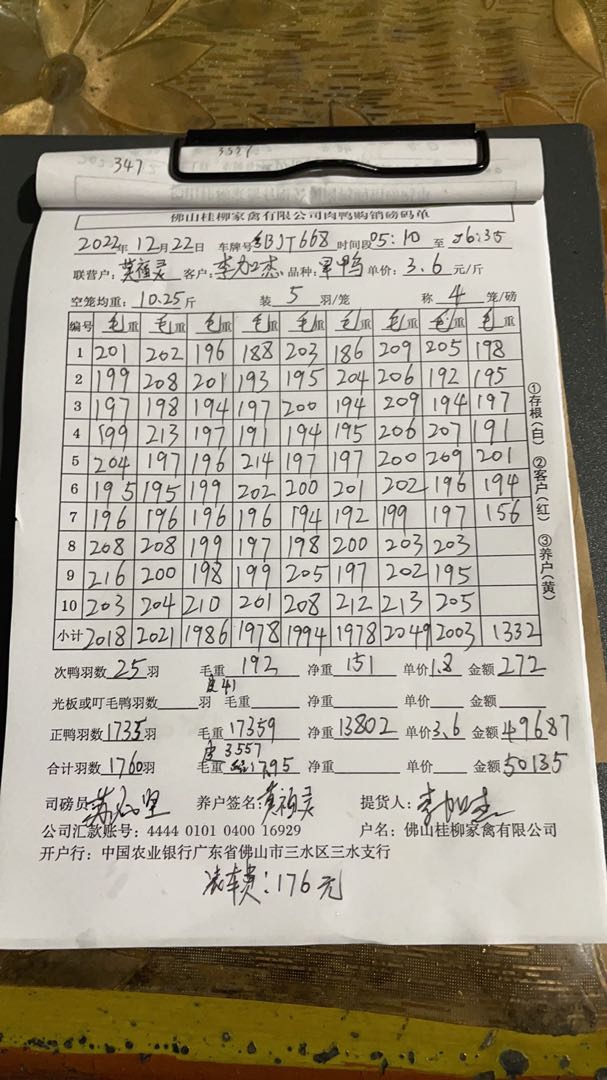 347
佛山桂柳家禽有限公司肉鸭购销磅码单
2022年12月22日 车牌号粤BJT668 时间段05:10 至 06:35
联营户: 客户: 品种: 单价: 3.6 元/斤
空笼均重: 10.25斤 装 5 羽/笼 称 4 笼/磅
编号 毛重 毛重 毛重 毛重 毛重 毛重 毛重 毛重 毛重
1 201 202 196 188 203 186 209 205 198
2 199 208 201 193 195 204 206 192 195
3 197 198 194 197 200 194 209 194 197
4 199 213 197 191 194 195 206 207 191
5 204 197 196 214 197 197 200 209 201
6 195 195 199 202 200 201 202 196 194
7 196 196 196 196 194 192 199 197 156
8 208 208 199 197 198 200 203 203
9 216 200 198 199 205 197 202 195
10 203 204 210 201 208 212 213 205
小计 2018 2021 1986 1978 1994 1978 2049 2003 1332
①存根(白) ②客户(红) ③养户(黄)
次鸭羽数 25 羽 毛重 192 净重 151 单价 1.8 金额 272
皮41
光板或叮毛鸭羽数 羽 毛重 净重 单价 金额
正鸭羽数 1735羽 毛重 17359 净重 13802 单价 3.6 金额 49687
皮 3557
合计羽数 1760羽 毛重 净重 单价 金额 50135
司磅员: 养户签名: 提货人:
公司汇款账号: 4444 0101 0400 16929 户名: 佛山桂柳家禽有限公司
开户行: 中国农业银行广东省佛山市三水区三水支行
装车费: 176元